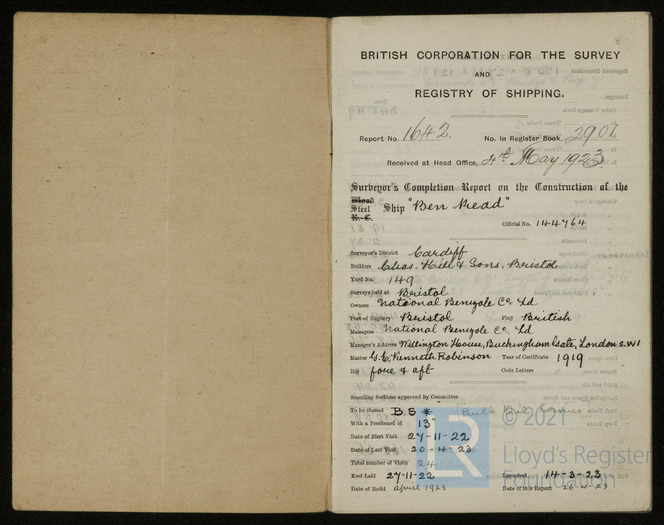 BRITISH CORPORATION FOR THE SURVEY
AND
REGISTRY OF SHIPPING.
Report No. 1642. No. in Register Book, 2907
Received at Head Office, 4th May 1923
Surveyor's Completion Report on the Construction of the
Wood
Steel Ship "Ben Read"
R.-C.
Official No. 144764
Surveyor's District Cardiff
Builders Chas. Hill & Sons, Bristol
Yard No. 149
Surveys held at Bristol
Owners National Benzole Co. Ld
Port of Registry Bristol Flag British
Managers National Benzole Co. Ld
Manager's Address Wellington House, Buckingham Gate, London S.W1
Master G. E. Kenneth Robinson Year of Certificate 1919
Rig fore & aft Code Letters
Scantling Sections approved by Committee
To be classed B.S * Bulk
With a Freeboard of 13"
Date of First Visit 27-11-22
Date of Last Visit 20-4-23
Total number of Visits 24
Keel Laid 27-11-22 Launched 14-3-23
Date of Build April 1923 Date of this Report 26-4-23
LR
© 2021
Lloyd's Register
Foundation